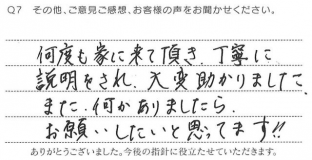 Q7 その他、ご意見ご感想、お客様の声をお聞かせください。
何度も家に来て頂き、丁寧に
説明をされ、大変助かりました
また、何かありましたら、
お願いしたいと思ってます!!
ありがとうございました。今後の指針に役立たせていただきます。